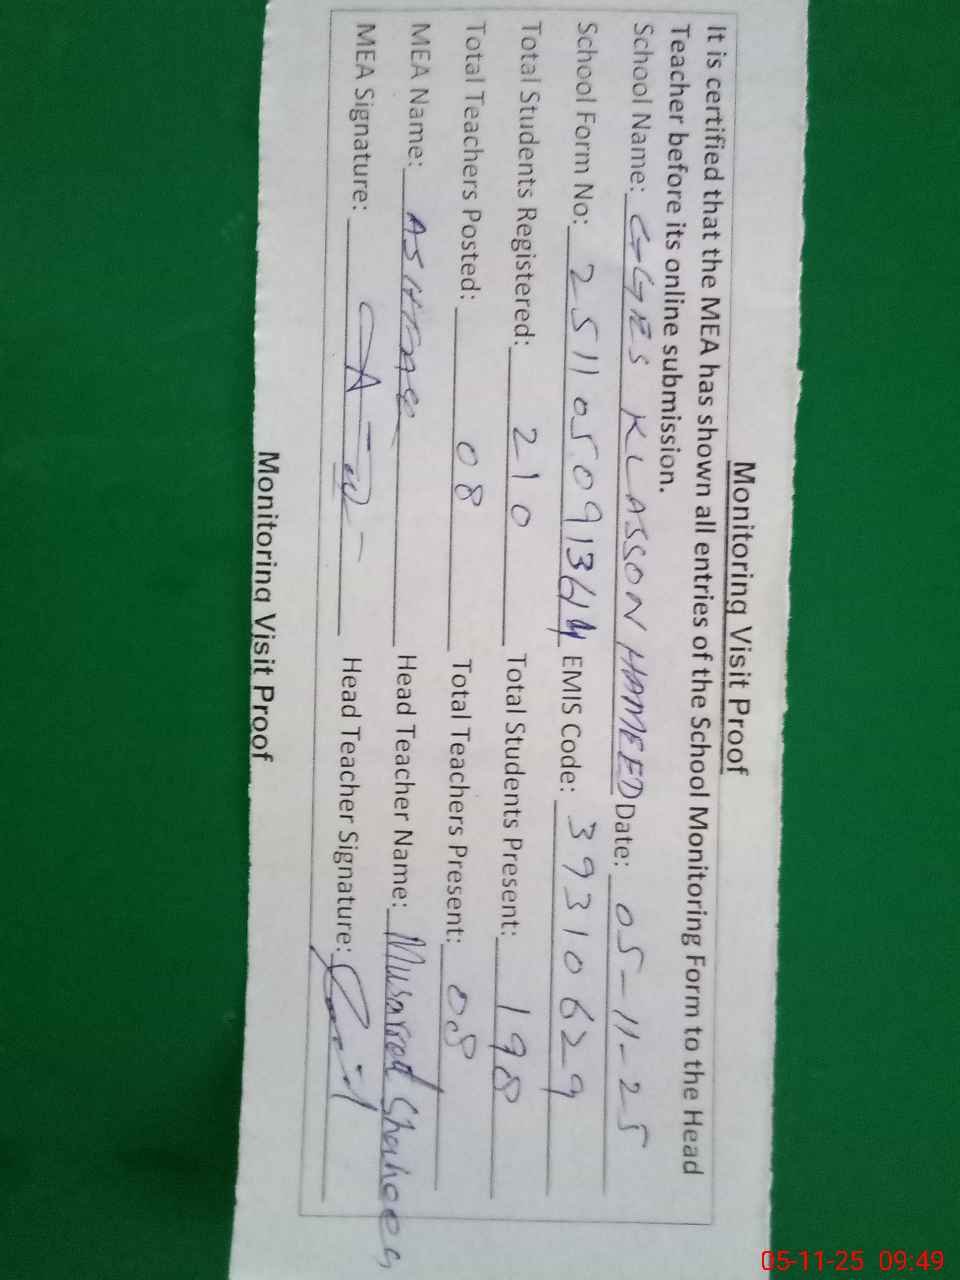 Monitoring Visit Proof
It is certified that the MEA has shown all entries of the School Monitoring Form to the Head
Teacher before its online submission.
School Name: GGES KLASSON HAMEED Date: 05-11-25
School Form No: 2511050913614 EMIS Code: 39310629
Total Students Registered: 210 Total Students Present: 198
Total Teachers Posted: 08 Total Teachers Present: 08
MEA Name: Head Teacher Name: Musarrat Shaheen
MEA Signature: Head Teacher Signature:
Monitoring Visit Proof
05-11-25 09:49